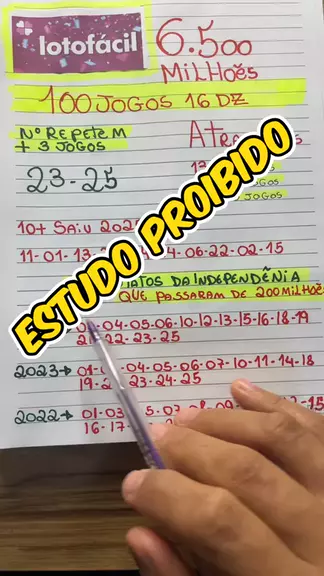 lotofácil 6.500
MILHOÊS
100 JOGOS 16 DZ
Nº REPETEM
+ 3 JOGOS
23-25
JOGOS
10+ SAIU
11-01-13 06-22-02-15
ESTUDO PROIBIDO
DA INDEPENDÊNIA
QUE PASSARAM DE 200 MILHOÊS
04-05-06-10-12-13-15-16-18-19
22-23-25
2023→ 01 04-05-06-07-10-11-14-18
19 23-24-25
2022→ 01-03
16-17